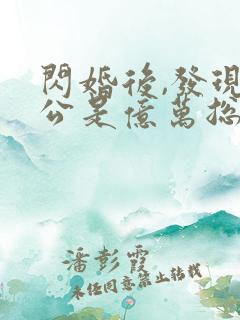 閃婚後,發現
公是億萬總
潘彭霞
未經同意禁止轉載